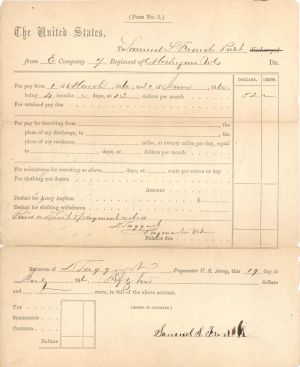 (Form No. 5.)
The United States,
To Samuel S French Privt discharged
from E Company 7 Regiment of Michigan Vol Dr.
DOLLARS. CENTS.
For pay from 1 of March 186 to of June 186
being 4 months days, at 13 dollars per month 52
For retained pay due
For pay for traveling from
place of my discharge, to the
place of my residence, miles, at twenty miles per day, equal
to days, at dollars per month
For subsistence for traveling as above, days, at cents per ration or day
For clothing not drawn
Amount $
Deduct for Army Asylum
Deduct for clothing overdrawn
Paymaster U.S.
Balance due
Received of Taggart, Paymaster U. S. Army, this 19 day of
July 186 Fifty two dollars
and cents, in full of the above account.
Pay
Subsistence
Clothing
Dollars
(SIGNED IN DUPLICATE.)
Samuel S. French